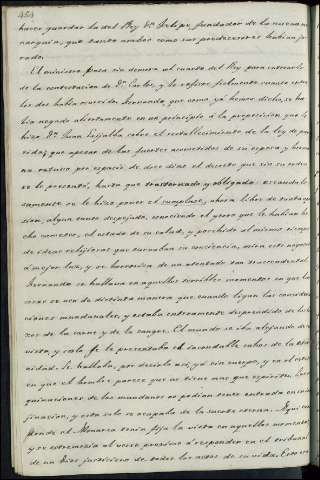 454
hacer guardar la del Rey Dn. Felipe, fundador de la nueva mo
narquia, que tanto ambos como sus predecesores habian ju
rado.
El ministro pasa sin demora al cuarto del Rey para enterarle
de la contestacion de Dn. Carlos, y le refiere fielmente cuanto entre
los dos habia ocurrido. Fernando, que como ya hemos dicho, se ha
bia negado abiertamente en un principio à la proposicion que le
hizo Dn. Juan sobre el restablecimiento de la ley de par
tida; que apesar de las fuertes acometidas de su esposa y herma
na retuvo por espacio de doce dias el decreto que sin su orden
se le presentó, hasta que trastornado y obligado
samente se le hizo poner el cumplase, ahora libre de
algun tanto despejado, conociendo el yerro que le habian he
cho cometer, el estado de su salud, y movido al mismo tiempo
de ideas relijiosas que turbaban su conciencia, mira este negocio
à mejor luz, y se horroriza de un atentado tan trascendental.
Fernando se hallaba en aquellos terribles momentos en que las
cosas se ven de distinta manera que cuando ligan las considera
ciones mundanales, y estaba enteramente desprendido de los la
zos de la carne y de la sangre. El mundo se iba alejando de su
vista, y solo fe le presentaba el insondable cahos de la eter
nidad. Se hallaba, por decirlo asi, ya sin cuerpo, y en el estado
en que el hombre parece que no tiene mas que espiritu. Las
maquinaciones de los mundanos no podian tener entrada en su ima
jinacion, y esta solo se ocupaba de la suerte eterna. Aqui era
donde el Monarca tenia fija la vista en aquellos momentos
y se estremecia al verse proximo à responder en el tribunal
de un Dios justiciero de todos los actos de su vida. Este